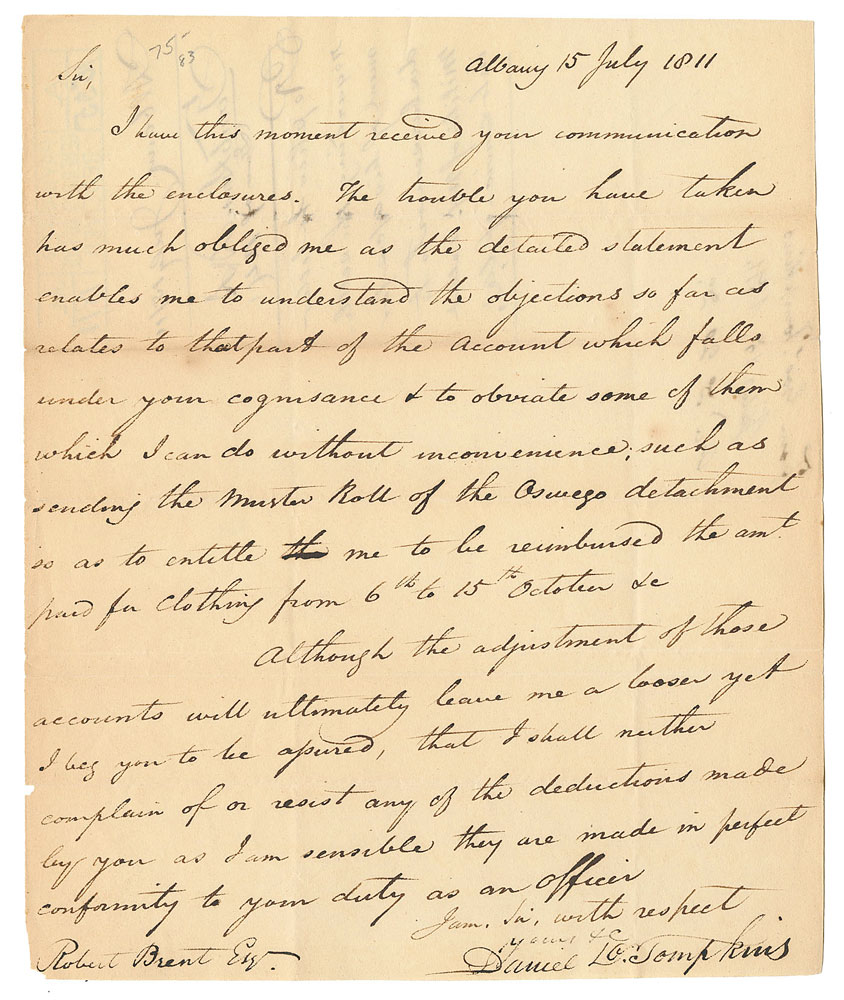 75-
83
Albany 15 July 1811
Sir,
I have this moment received your communication
with the enclosures. The trouble you have taken
has much obliged me as the detailed statement
enables me to understand the objections so far as
relates to that part of the account which falls
under your cognisance & to obviate some of them
which I can do without inconvenience; such as
sending the Muster Roll of the Oswego detachment
so as to entitle me to be reimbursed the amt.
paid for Clothing from 6th to 15th October &c
Although the adjustment of those
accounts will ultimately leave me a looser yet
I beg you to be assured, that I shall neither
complain of or resist any of the deductions made
by you as I am sensible they are made in perfect
conformity to your duty as an officer
I am, Sir, with respect
yours &c
Robert Brent Esqr.
Daniel D. Tompkins